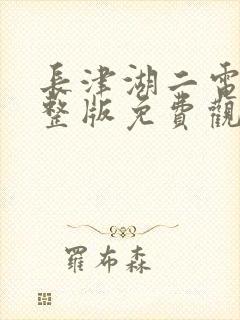 長津湖二電
整版免費觀
羅布森